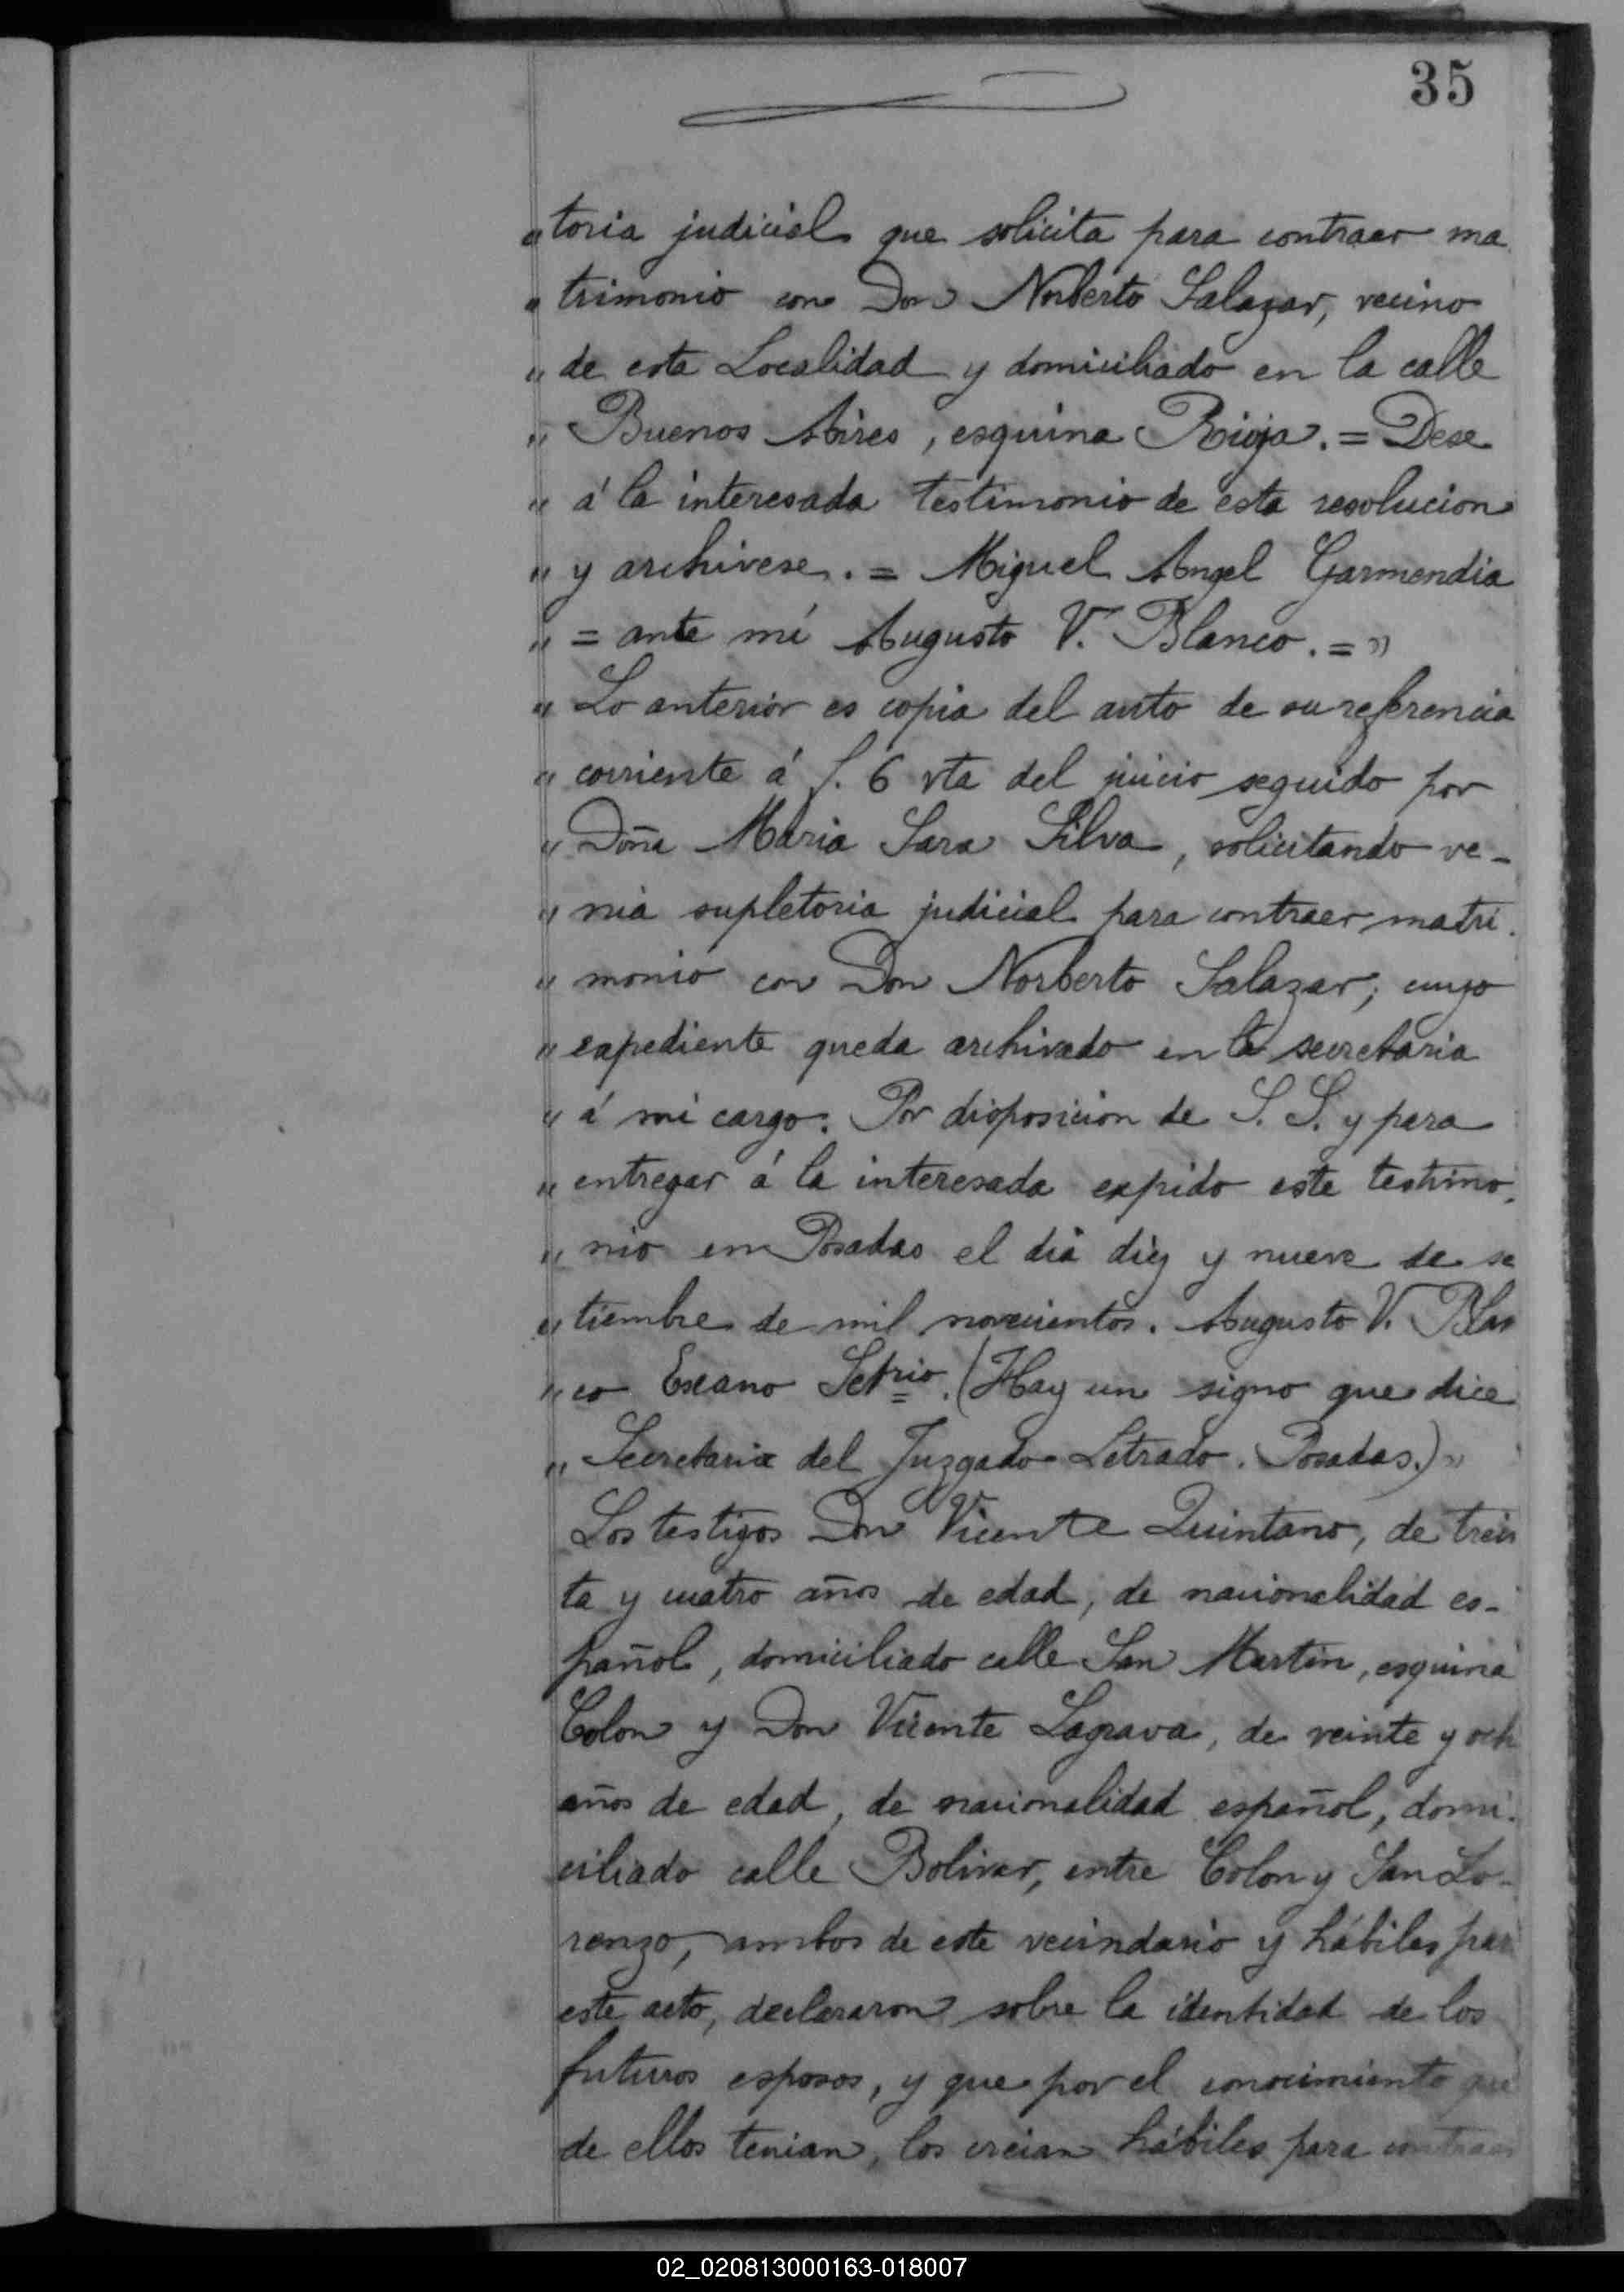 35
"toria judicial que solicita para contraer ma
"trimonio con Don Norberto Salazar, vecino
"de esta Localidad y domiciliado en la calle
"Buenos Aires, esquina Rioja. = Dese
"á la interesada testimonio de esta resolucion
"y archivese. = Miguel Angel Garmendia
"= ante mí Augusto V. Blanco. = "
"Lo anterior es copia del auto de su referencia
"corriente á f. 6 vta del juicio seguido por
"Doña Maria Sara Silva, solicitando ve-
"nia supletoria judicial para contraer matri.
"monio con Don Norberto Salazar; cuyo
"expediente queda archivado en la secretaria
"á mi cargo. Por disposicion de S. S. y para
"entregar á la interesada expido este testimo.
"nio en Posadas el dia diez y nueve de se
"tiembre de mil novecientos. Augusto V. Blan
"co Escano Setrio. (Hay un signo que dice
"Secretaria del Juzgado Letrado. Posadas.)"
Los testigos Don Vicente Quintano, de trein
ta y cuatro años de edad, de nacionalidad es-
pañol, domiciliado calle San Martin, esquina
Colon y Don Vicente Lagrava, de veinte y och
años de edad, de nacionalidad español, domi.
ciliado calle Bolivar, entre Colon y San Lo-
renzo, ambos de este vecindario y hábiles par
este acto, declararon sobre la identidad de los
futuros esposos, y que por el conocimiento que
de ellos tenian, los creian hábiles para contraer
02_020813000163-018007